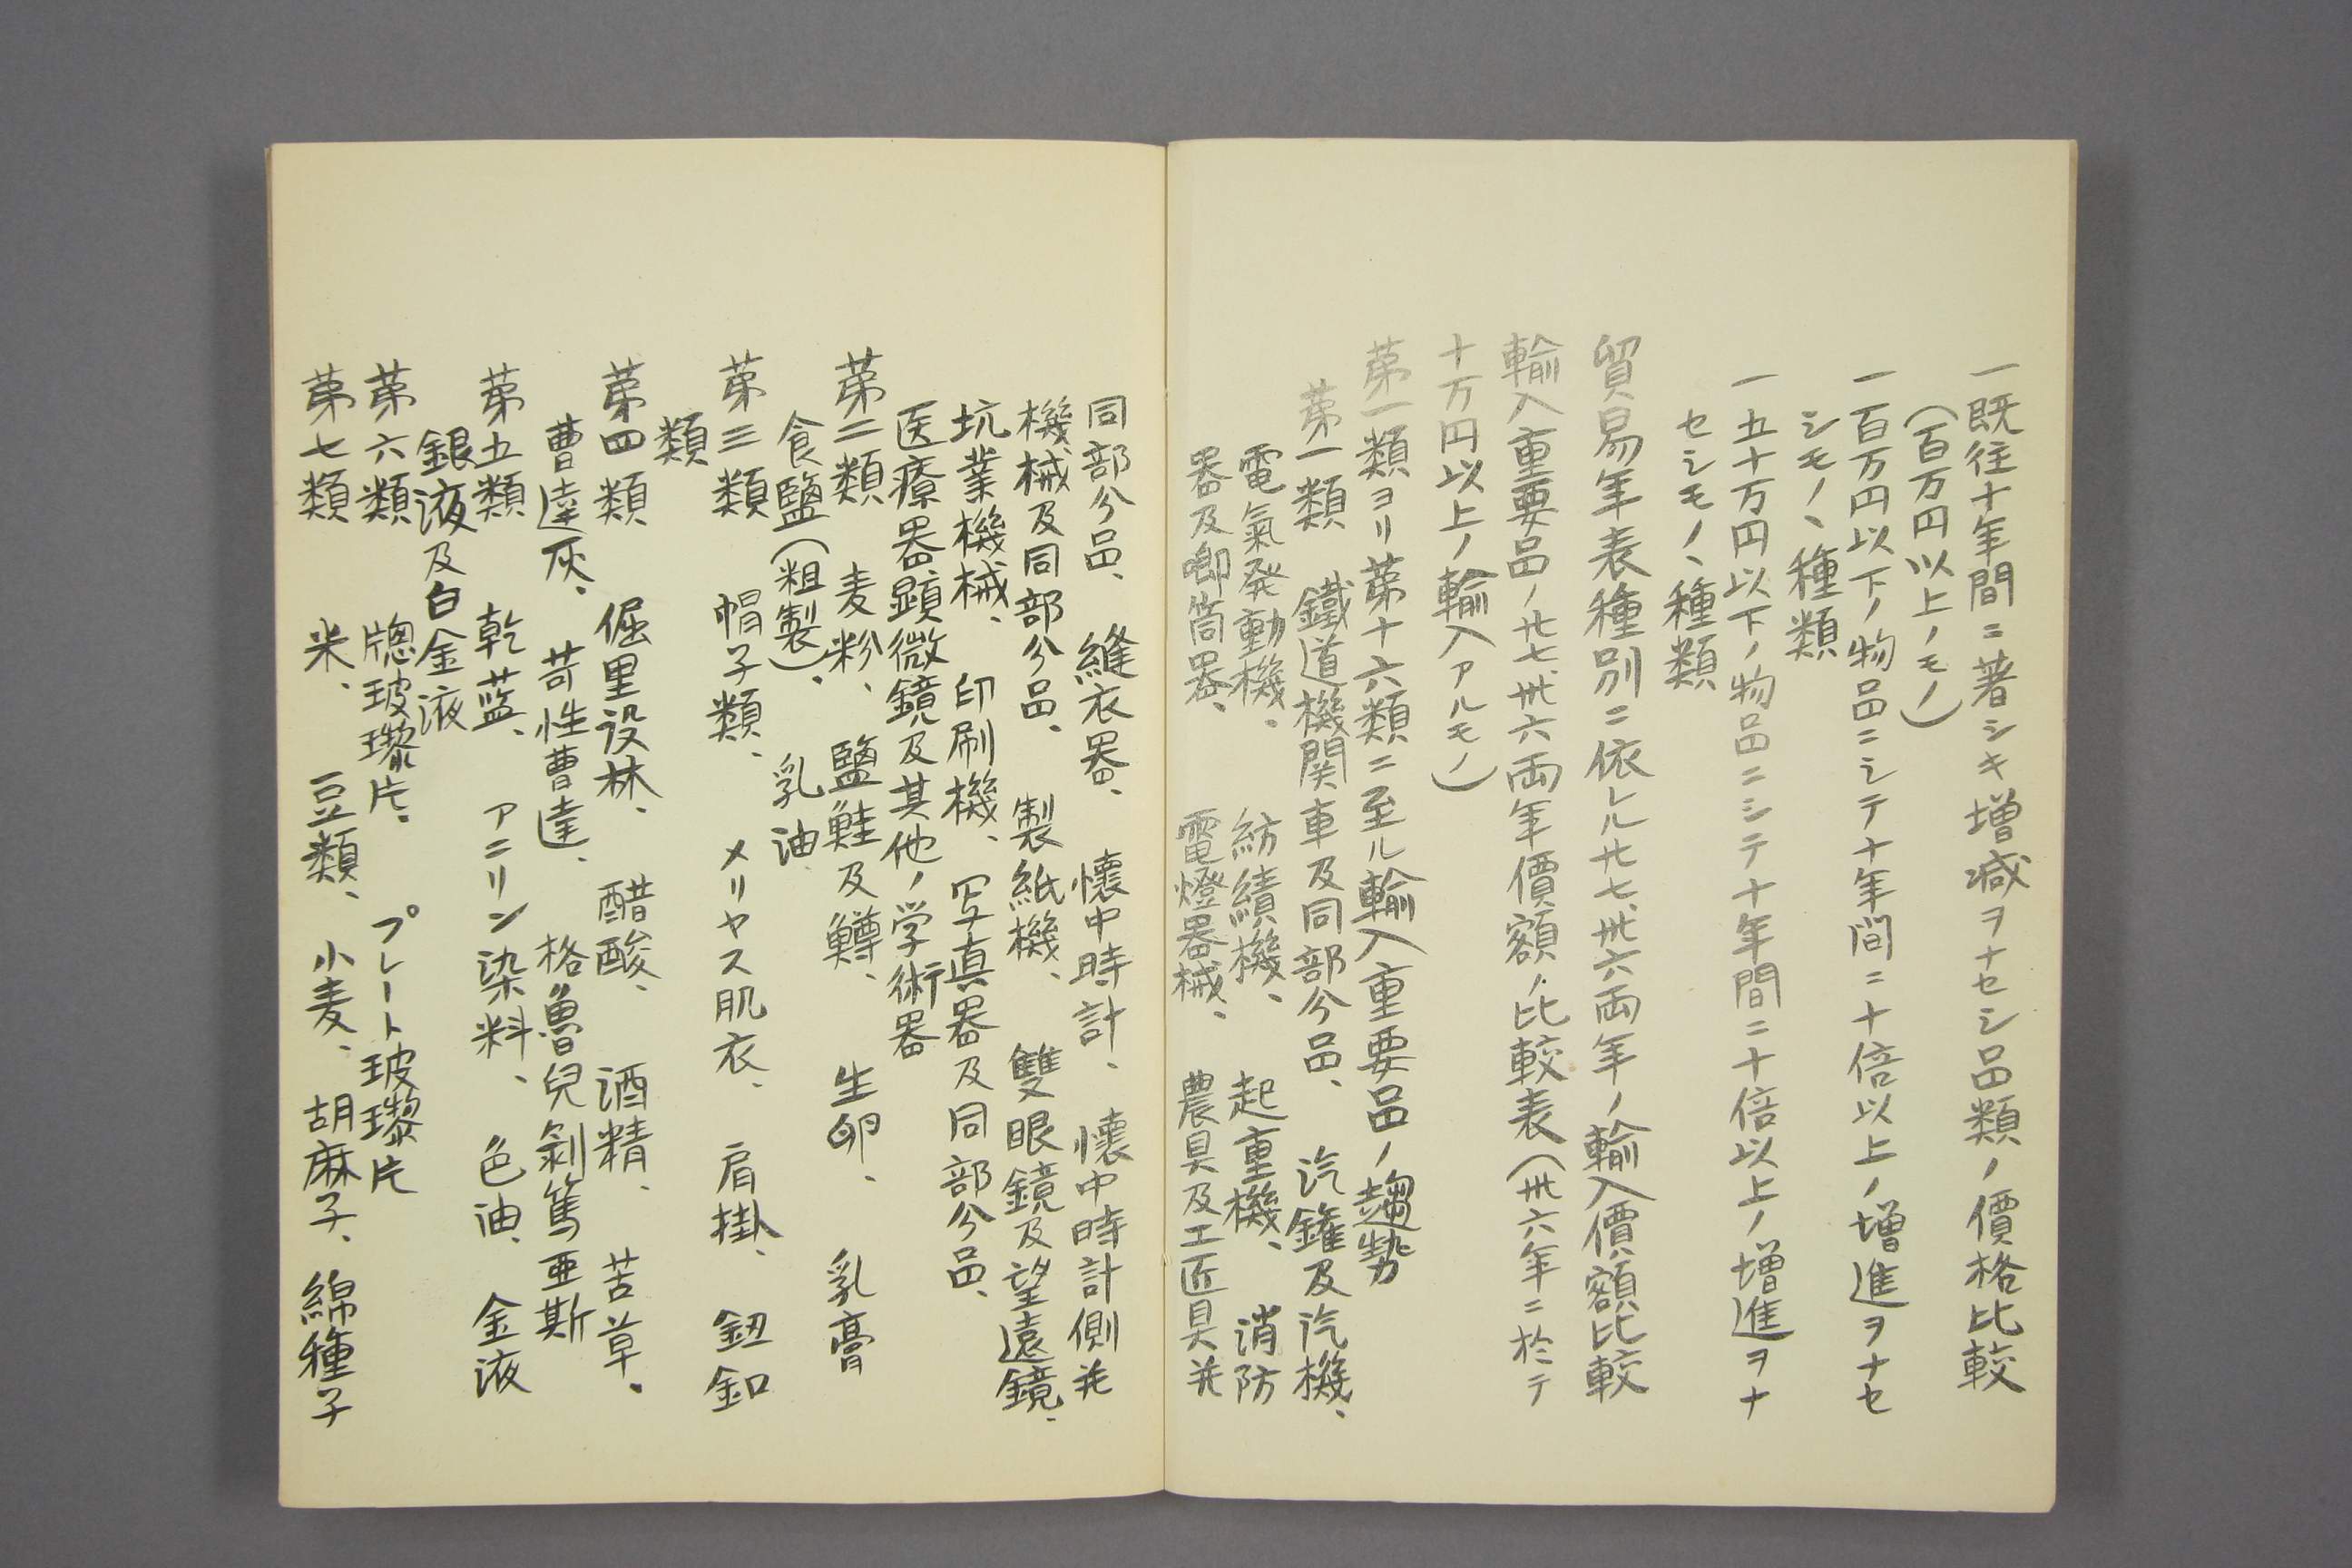 一既往十年間ニ著シキ増減ヲナセシ品類ノ價格比較
（百万円以上ノモノ）
一百万円以下ノ物品ニシテ十年間ニ十倍以上ノ増進ヲナセ
シモノヽ種類
一五十万円以下ノ物品ニシテ十年間ニ十倍以上ノ増進ヲナ
セシモノヽ種類
貿易年表種別ニ依レル廿七、卅六両年ノ輸入價額比較
輸入重要品ノ廿七、卅六両年價額ノ比較表（卅六年ニ於テ
十万円以上ノ輸入アルモノ）
第一類ヨリ第十六類ニ至ル輸入重要品ノ趨勢
第一類 鐵道機関車及同部分品、 汽鑵及汽機、
電氣発動機、 紡績機、 起重機、 消防
器及喞筒器、 電燈器械、 農具及工匠具并
同部分品、 縫衣器、 懐中時計、 懐中時計側并
機械及同部分品、 製紙機、 雙眼鏡及望遠鏡、
坑業機械、 印刷機、 写真器及同部分品、
医療器顕微鏡及其他ノ学術器
第二類 麦粉、 鹽鮭及鱒、 生卵、 乳膏
食鹽（粗製）、 乳油
第三類 帽子類、 メリヤス肌衣、 肩掛、 鈕釦
類
第四類 倔里设林、 醋酸、 酒精、 苦草、
曹達灰、 苛性曹達、 格魯兒剝篤亜斯
第五類 乾藍、 アニリン染料、 色油、 金液
銀液及白金液
第六類 牕玻瓈片、 プレート玻瓈片
第七類 米、 豆類、 小麦、 胡麻子、 綿種子